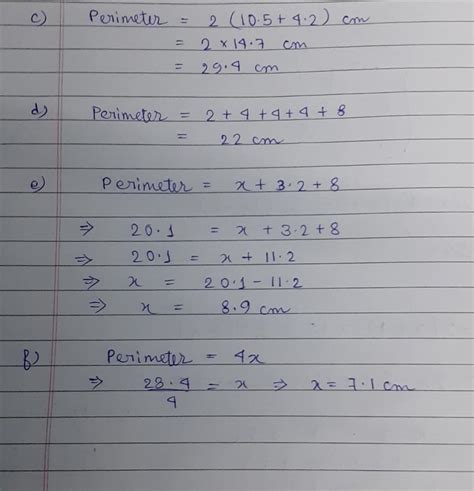 c) Perimeter = 2 (10.5 + 4.2) cm
= 2 × 14.7 cm
= 29.4 cm
d) Perimeter = 2 + 4 + 4 + 4 + 8
= 22 cm
e) Perimeter = x + 3.2 + 8
⇒ 20.1 = x + 3.2 + 8
⇒ 20.1 = x + 11.2
⇒ x = 20.1 - 11.2
⇒ x = 8.9 cm
f) Perimeter = 4x
⇒ 28.4/4 = x ⇒ x = 7.1 cm